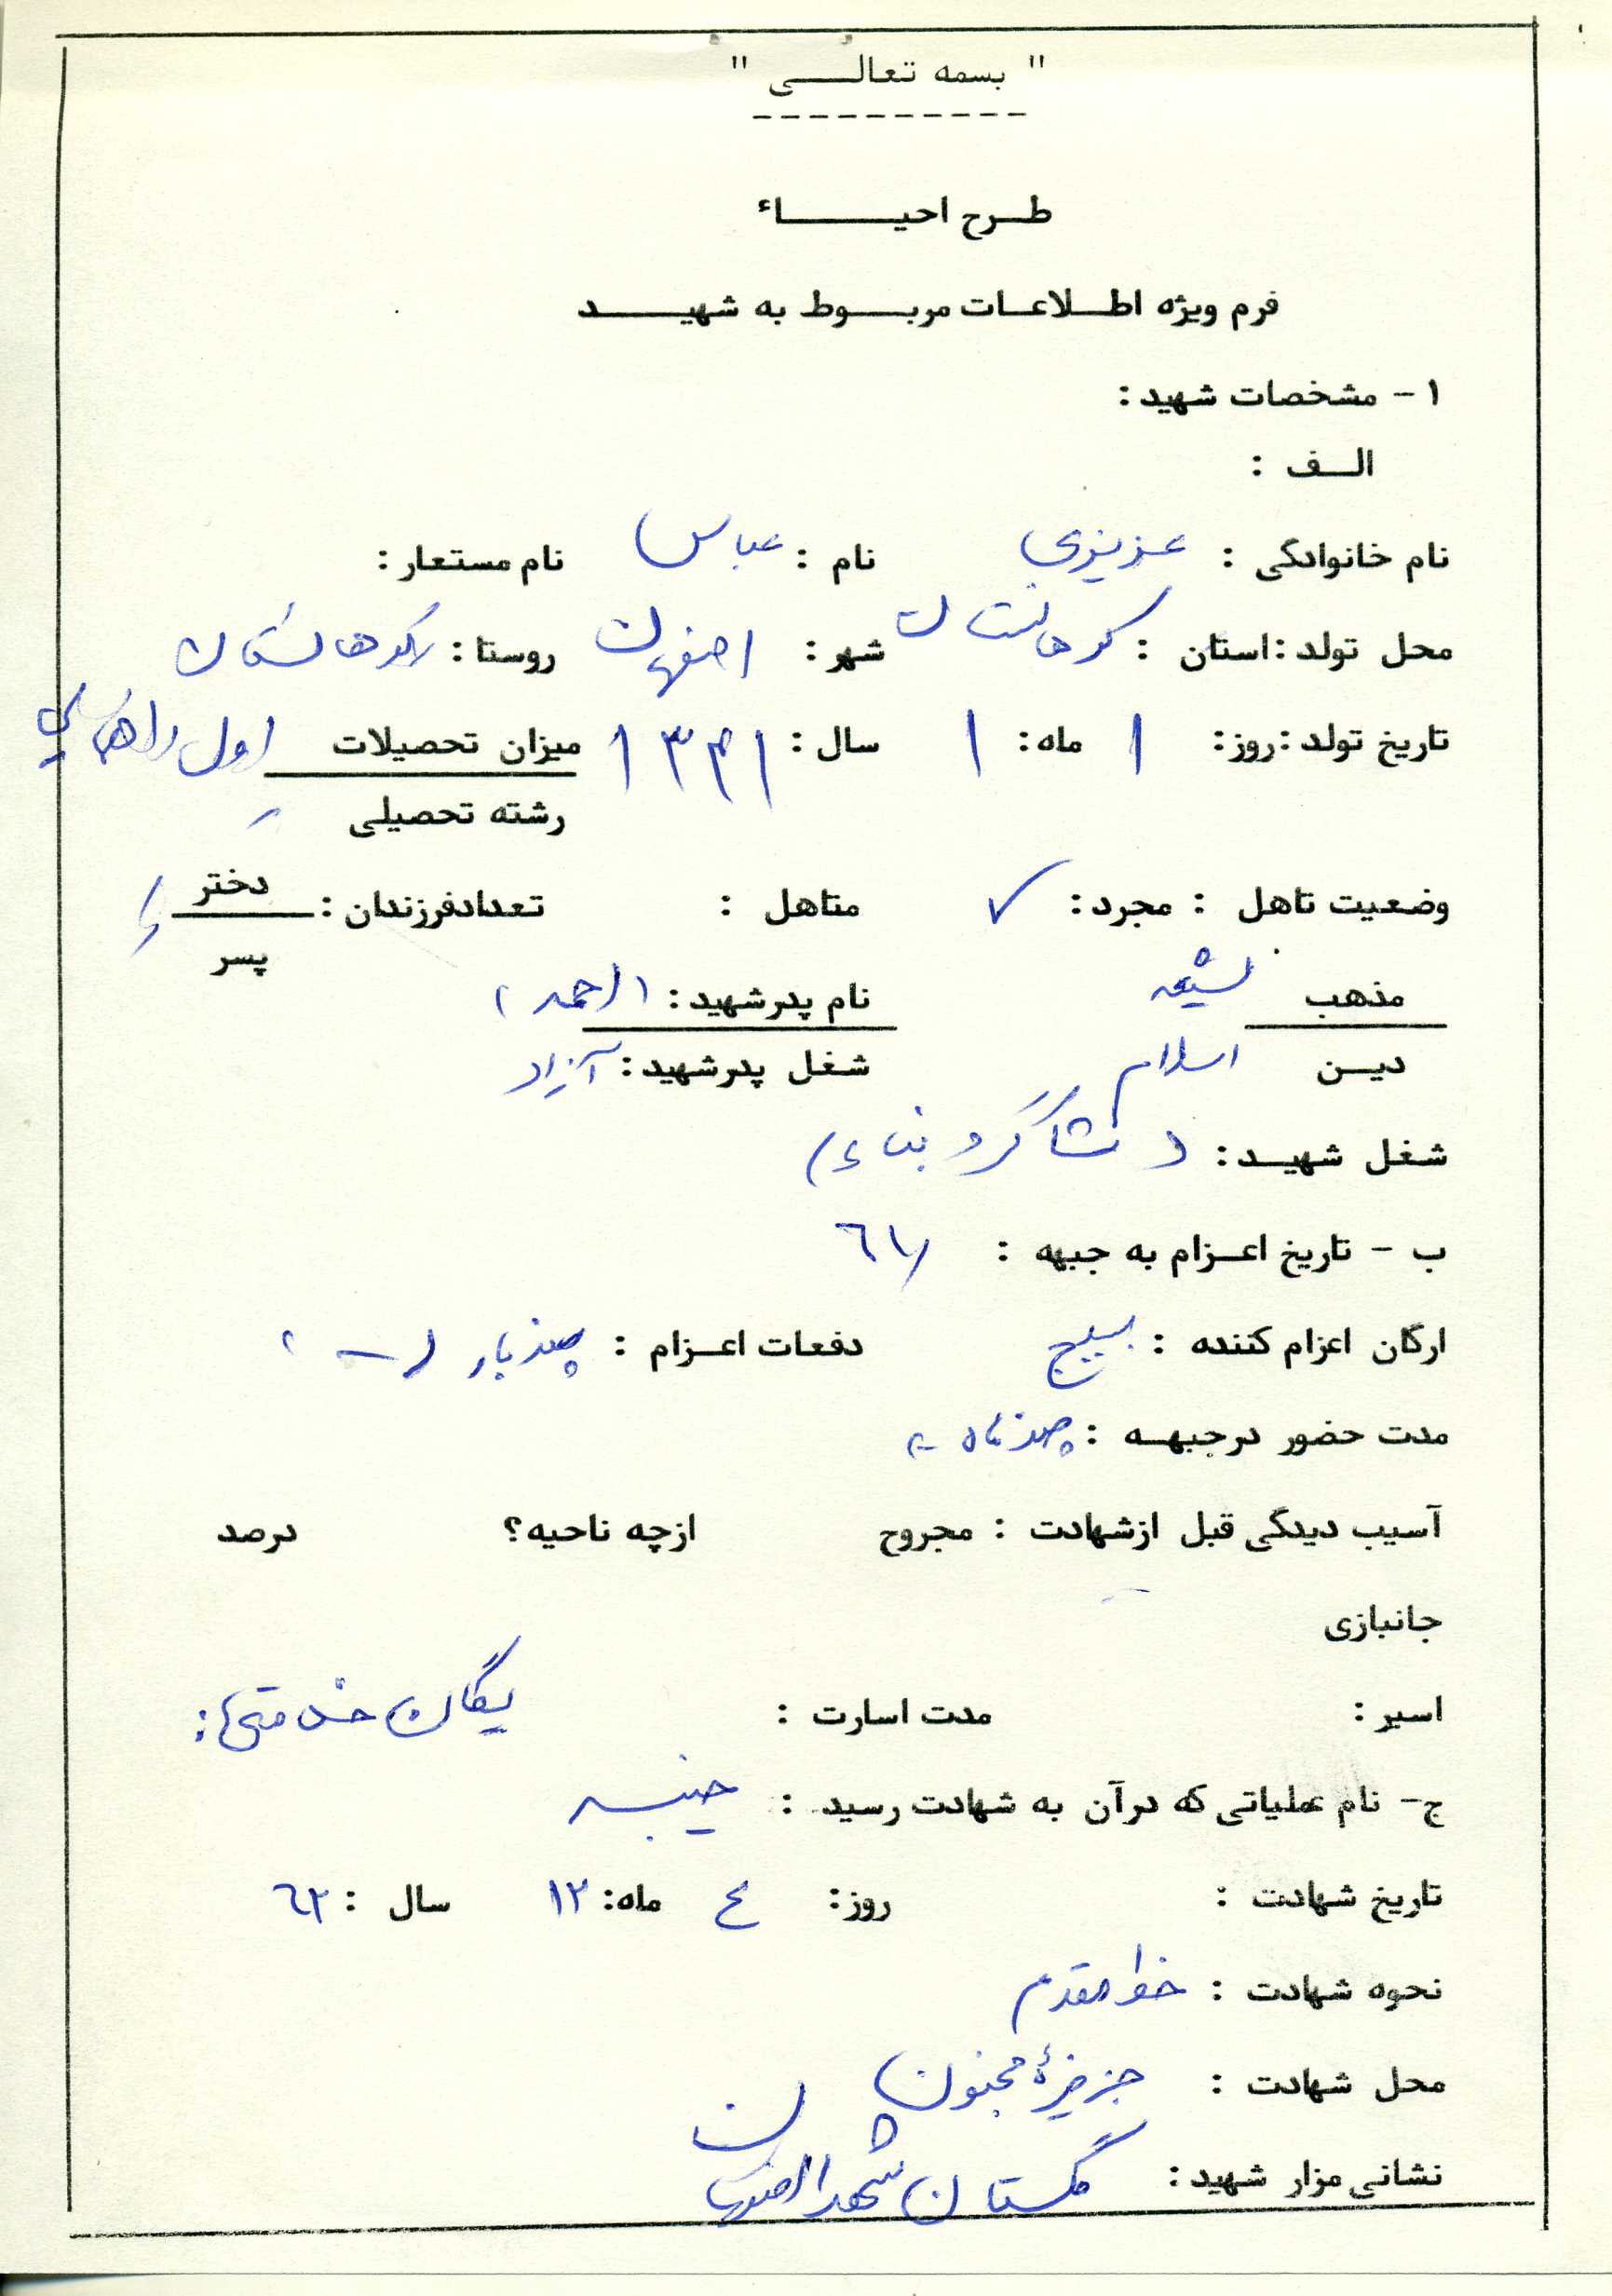 " بسمه تعالی "
طرح احیاء
فرم ویژه اطلاعات مربوط به شهید
۱ - مشخصات شهید :
الف :
نام خانوادگی : عزیزی نام : عباس نام مستعار :
محل تولد : استان : کوهانستان شهر : اصفهان روستا : کوهانستان
تاریخ تولد : روز : ۱ ماه : ۱ سال : ۱۳۴۱ میزان تحصیلات اول راهنمایی
رشته تحصیلی -
وضعیت تاهل : مجرد : ✓ متاهل : تعدادفرزندان : دختر
پسر
مذهب شیعه نام پدرشهید : (احمد)
دین اسلام شغل پدرشهید : آزاد
شغل شهید : (شاگرد بناء)
ب - تاریخ اعزام به جبهه : ٦١
ارگان اعزام کننده : بسیج دفعات اعزام : چند بار
مدت حضور درجبهه : چند ماه
آسیب دیدگی قبل ازشهادت : مجروح ازچه ناحیه؟ درصد
جانبازی
اسیر : مدت اسارت : یگان خدمتی :
ج - نام عملیاتی که درآن به شهادت رسید : خیبر
تاریخ شهادت : روز : ٤ ماه : ۱۲ سال : ٦٢
نحوه شهادت : خط مقدم
محل شهادت : جزیرهٔ مجنون
نشانی مزار شهید : گلستان شهدا اصفهان